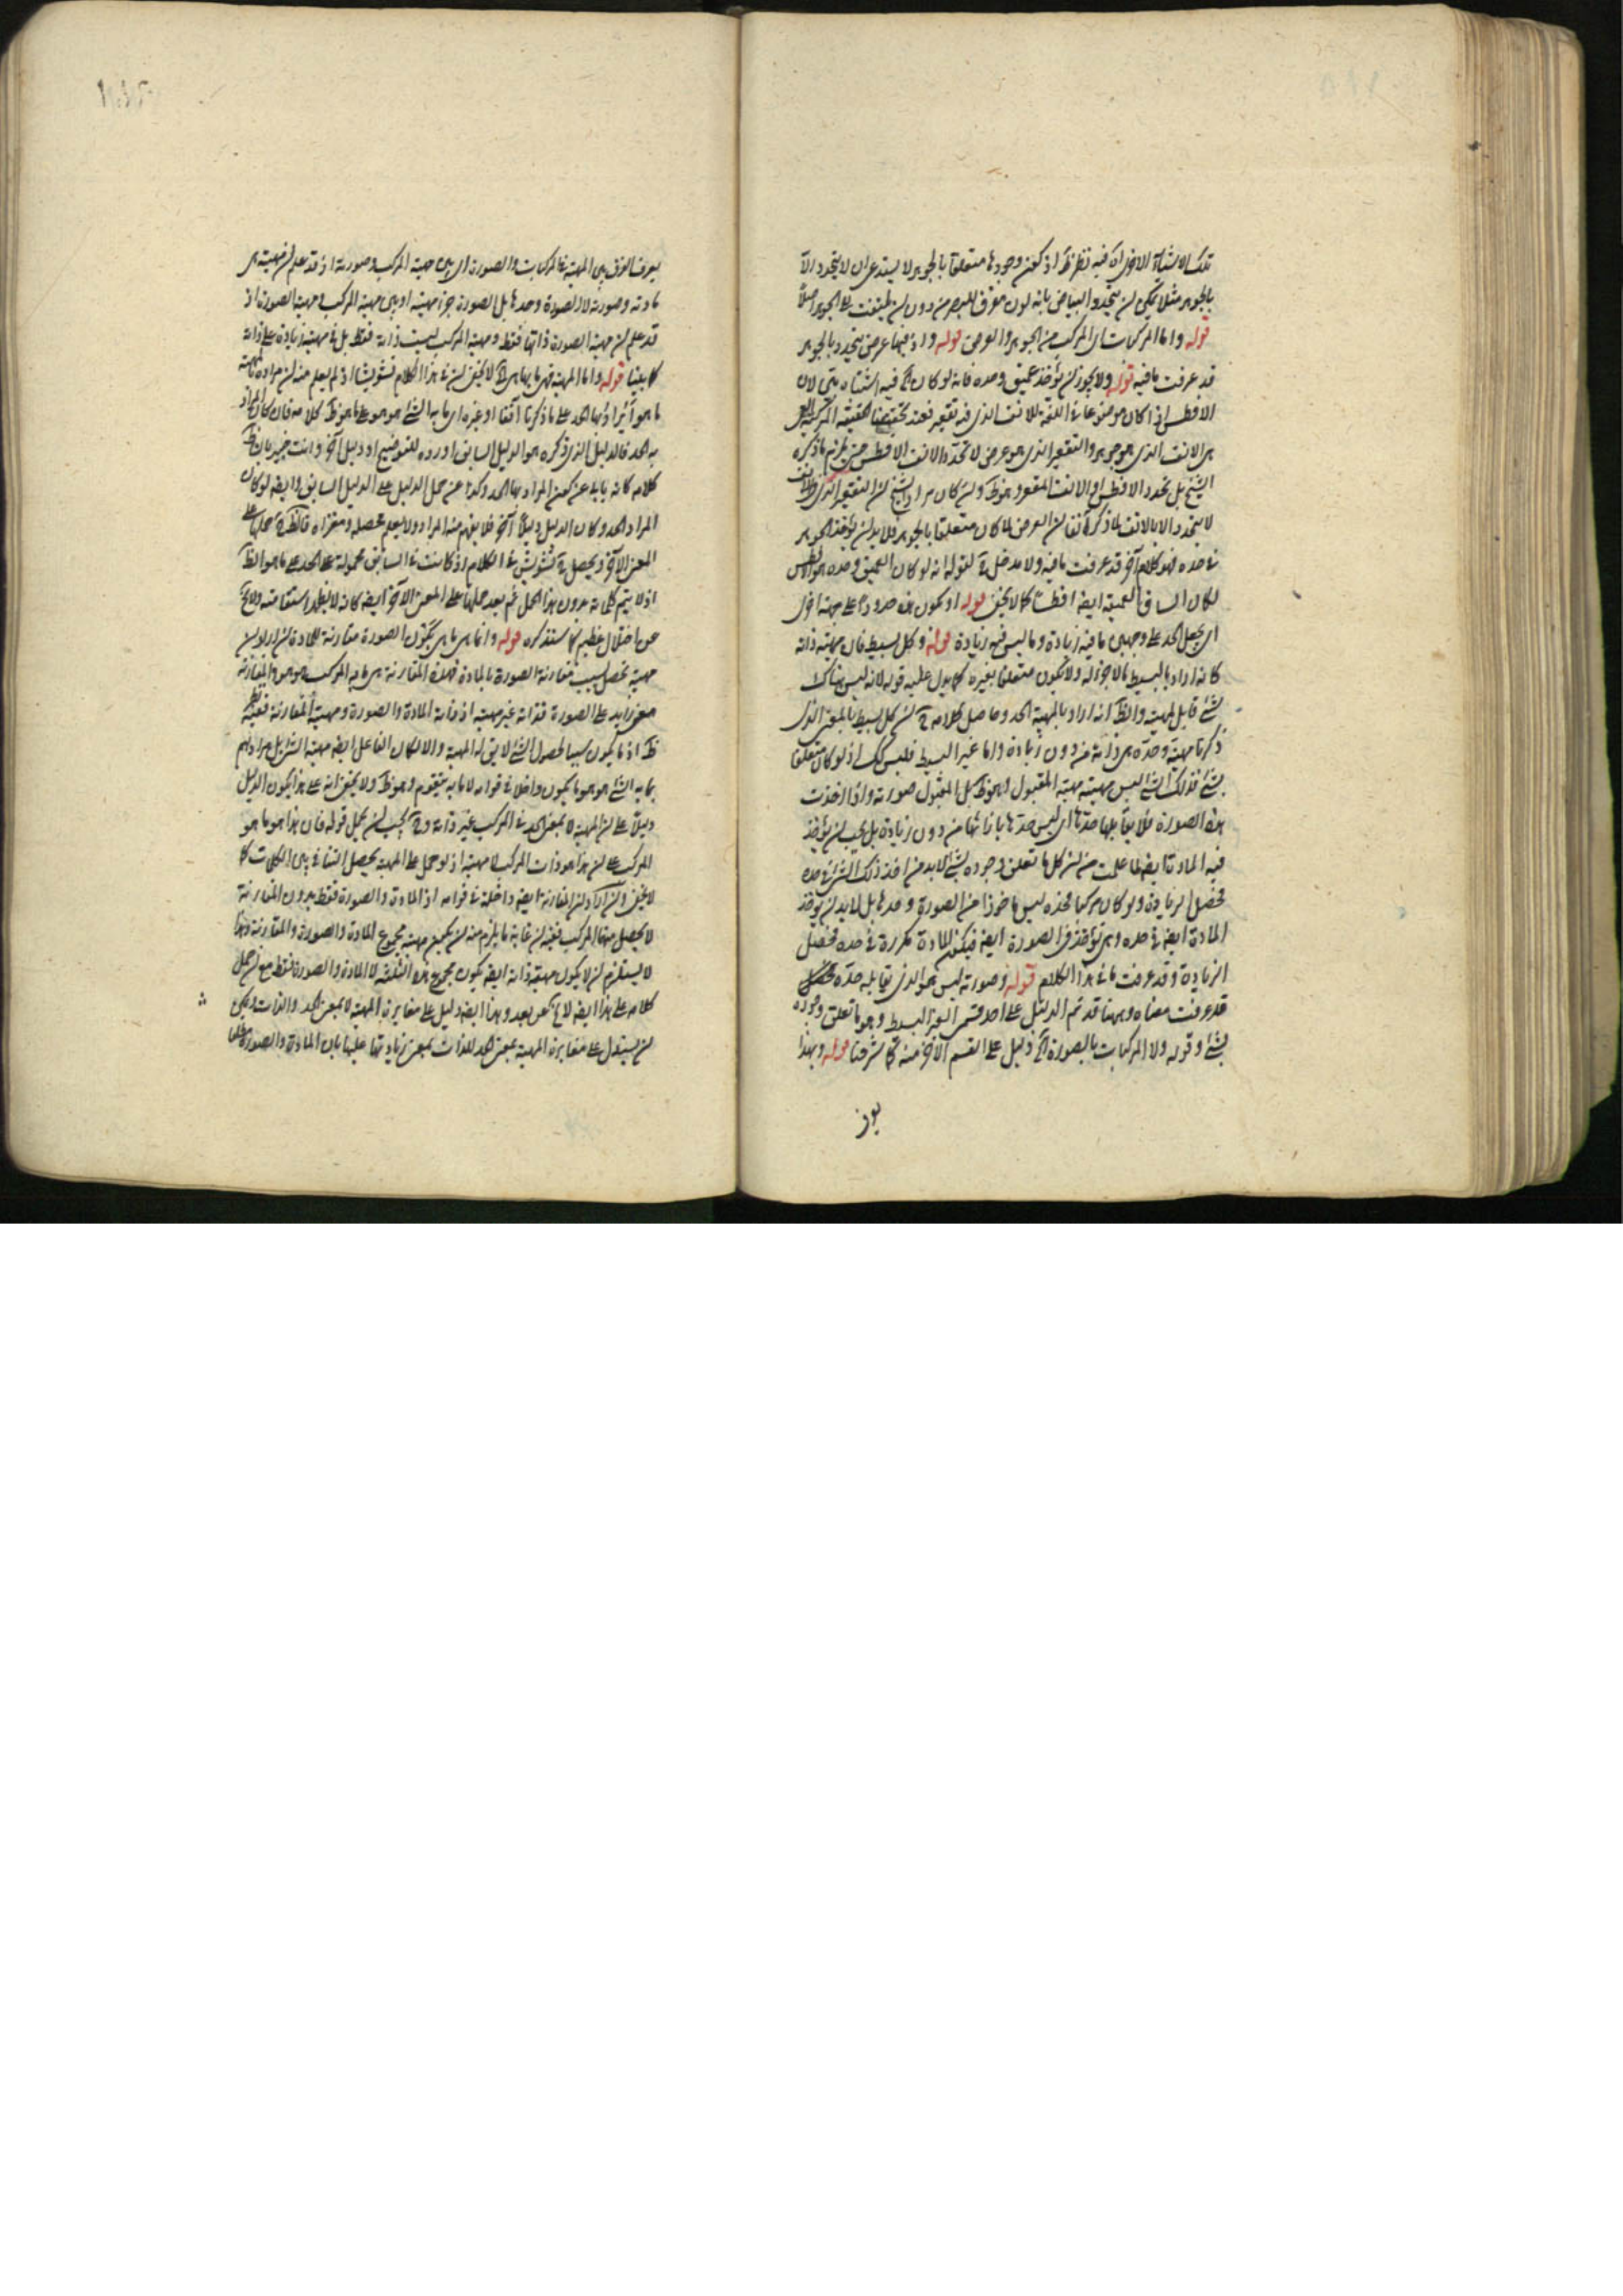 تلك الاشياء الاخرى اه فيه نظر ظ اذ كون وجودها متعلقا بالجوهر لا يستدعى ان لا يتحدد الا
بالجوهر مثلا يمكن ان يتحدد البياض بانه لون مفرق للبصر من دون ان يلتفت الى الجوهر اصلا
قوله واما المركبات اى المركب من الجوهر والعرض قوله واذ فيها عرض يتحدد بالجوهر
قد عرفت ما فيه قوله ولا يجوز ان يؤخذ عميق وحده فانه لو كان اه فيه اشتباه بين لان
الافطس اذا كان موضوعا فى اللغة للانف الذى فيه تقعير فعند تحقيقنا لحقيقة المركبة
من الانف الذى هو جوهر والتقعير الذى هو عرض لا نحد الانف الافطس حتى يلزم ما ذكره
الشيخ بل نحدد الافطس او الانف المقعر وهو ظ وان كان مراد الشيخ ان التقعير الذى فى الانف
لا يتحدد الا بالانف لما ذكره آنفا ان العرض لما كان متعلقا بالجوهر فلا بد ان يؤخذ الجوهر
فى حده فهو كلام آخر قد عرفت ما فيه ولا مدخل ح لقوله انه لو كان العميق وحده هو الافطس
لكان الساق العميقة ايضا افطس كما لا يخفى قوله او يكون هذه حدودا على جهة اخرى
اى يجعل الحد على وجهين ما فيه زيادة وما ليس فيه زيادة قوله وكل بسيط فان مهيته ذاته
كانه اراد بالبسيط ما لا جزء له ولا يكون متعلقا بغيره كما يدل عليه قوله لانه ليس هناك
شئ قابل لمهيته والظ انه اراد بالمهية الحد وحاصل كلامه ح ان كل بسيط بالمعنى الذى
ذكرنا مهيته وحده هى ذاته من دون زيادة واما غير البسيط فليس كك اذ لو كان متعلقا
بشئ فذلك الشئ ليس مهيته مهية المقبول وهو ظ بل المقبول صورته واذا اخذت
هذه الصورة فلا يقابلها حدها اى ليس حدها بازائها من دون زيادة بل يجب ان يؤخذ
فيه المادة ايضا لما علمت من ان كل ما تعلق وجوده بشئ لا بد من اخذ ذلك الشئ فى حده
فحصل الزيادة ولو كان مركبا فحده ليس ماخوذا من الصورة وحدها بل لا بد ان يؤخذ
المادة ايضا فى حده وهى تؤخذ فى الصورة ايضا فيكون المادة مكررة فى حده فحصل
الزيادة وقد عرفت ما فى هذا الكلام قوله وصورته ليس هو الذى يقابله حده
قد عرفت معناه وههنا قد تم الدليل على احد قسمى الغير البسيط وهو ما تعلق وجوده
بشئ وقوله ولا المركبات بالصورة اه دليل على القسم الآخر منه كما شرحنا قوله وبهذا
يعرف الفرق بين المهية فى المركبات والصورة اى بين مهية المركب وصورته اذ قد علم ان مهيته هى
مادته وصورته لا الصورة وحدها بل الصورة جزء مهيته او بين مهية المركب ومهية الصورة اذ
قد علم ان مهية الصورة ذاتها فقط ومهية المركب ليست ذاته فقط بل فى مهيته زيادة على ذاته
كما بينا قوله واما المهية فهى ما بها هى اه لا يخفى ان فى هذا الكلام تشويشا اذ لم يعلم منه ان مراده بالمهية
ما هو أيراد بها الحد على ما ذكرنا آنفا او غيره اى ما به الشئ هو هو على ما هو ظ كلامه فان كان المراد
به الحد فالدليل الذى ذكره هو الدليل السابق اورده للتوضيح او دليل آخر وانت خبير بان ظ
كلامه كانه يابى عن كون المراد بها الحد وكذا عن حمل الدليل على الدليل السابق وايضا لو كان
المراد الحد وكان الدليل دليلا آخر فلا يفهم منه المراد ولا يعلم محصله ومغزاه فالظ ح حملها على
المعنى الآخر ويحصل ح تشويش فى الكلام اذ كانت فى السابق محمولة على الحد على ما هو الظ
اذ لا يتم كلامه بدون هذا الحمل ثم بعد حملها على المعنى الآخر ايضا كانه لا يظهر استقامته ولا يخ
عن اختلال عظيم كما سنذكره قوله وانما هى ما هى بكون الصورة مقارنة للمادة ان اراد ان
مهية تحصل بسبب مقارنة الصورة بالمادة فهذه المقارنة هى ما به المركب هو هو والمقارنة
معنى زايد على الصورة فذاته غير مهيته اذ ذاته المادة والصورة ومهيته المقارنة ففيه نظر
ظ اذ ما يكون سببا لحصول الشئ لا يق له المهية والا لكان الفاعل ايضا مهية الشئ بل مرادهم
بما به الشئ هو هو ما يكون داخلا فى قوامه لا ما به يتقوم وهو ظ ولا يخفى انه على هذا يكون الدليل
دليلا على ان المهية لا بمعنى الحد فى المركب غير ذاته وح يجب ان يحمل قوله فان هذا هو ما هو
المركب على ان هذا هو ذات المركب لا مهيته اذ لو حمل على المهية يحصل التنافى بين الكلمات كما
لا يخفى وان اراد ان المقارنة ايضا داخلة فى قوامه اذ المادة والصورة فقط بدون المقارنة
لا يحصل منها المركب ففيه ان غاية ما يلزم منه ان يكون مهيته مجموع المادة والصورة والمقارنة وهذا
لا يستلزم ان لا يكون مهيته ذاته ايضا بكون مجموع هذه الثلثة لا المادة والصورة فقط مع ان حمل
كلامه على هذا ايضا لا يخ عن بعد وهذا ايضا دليل على مغايرة المهية لا بمعنى الحد والذات ويمكن
ان يستدل على مغايرة المهية بمعنى الحد للذات بمعنى زيادتها عليها بان المادة والصورة